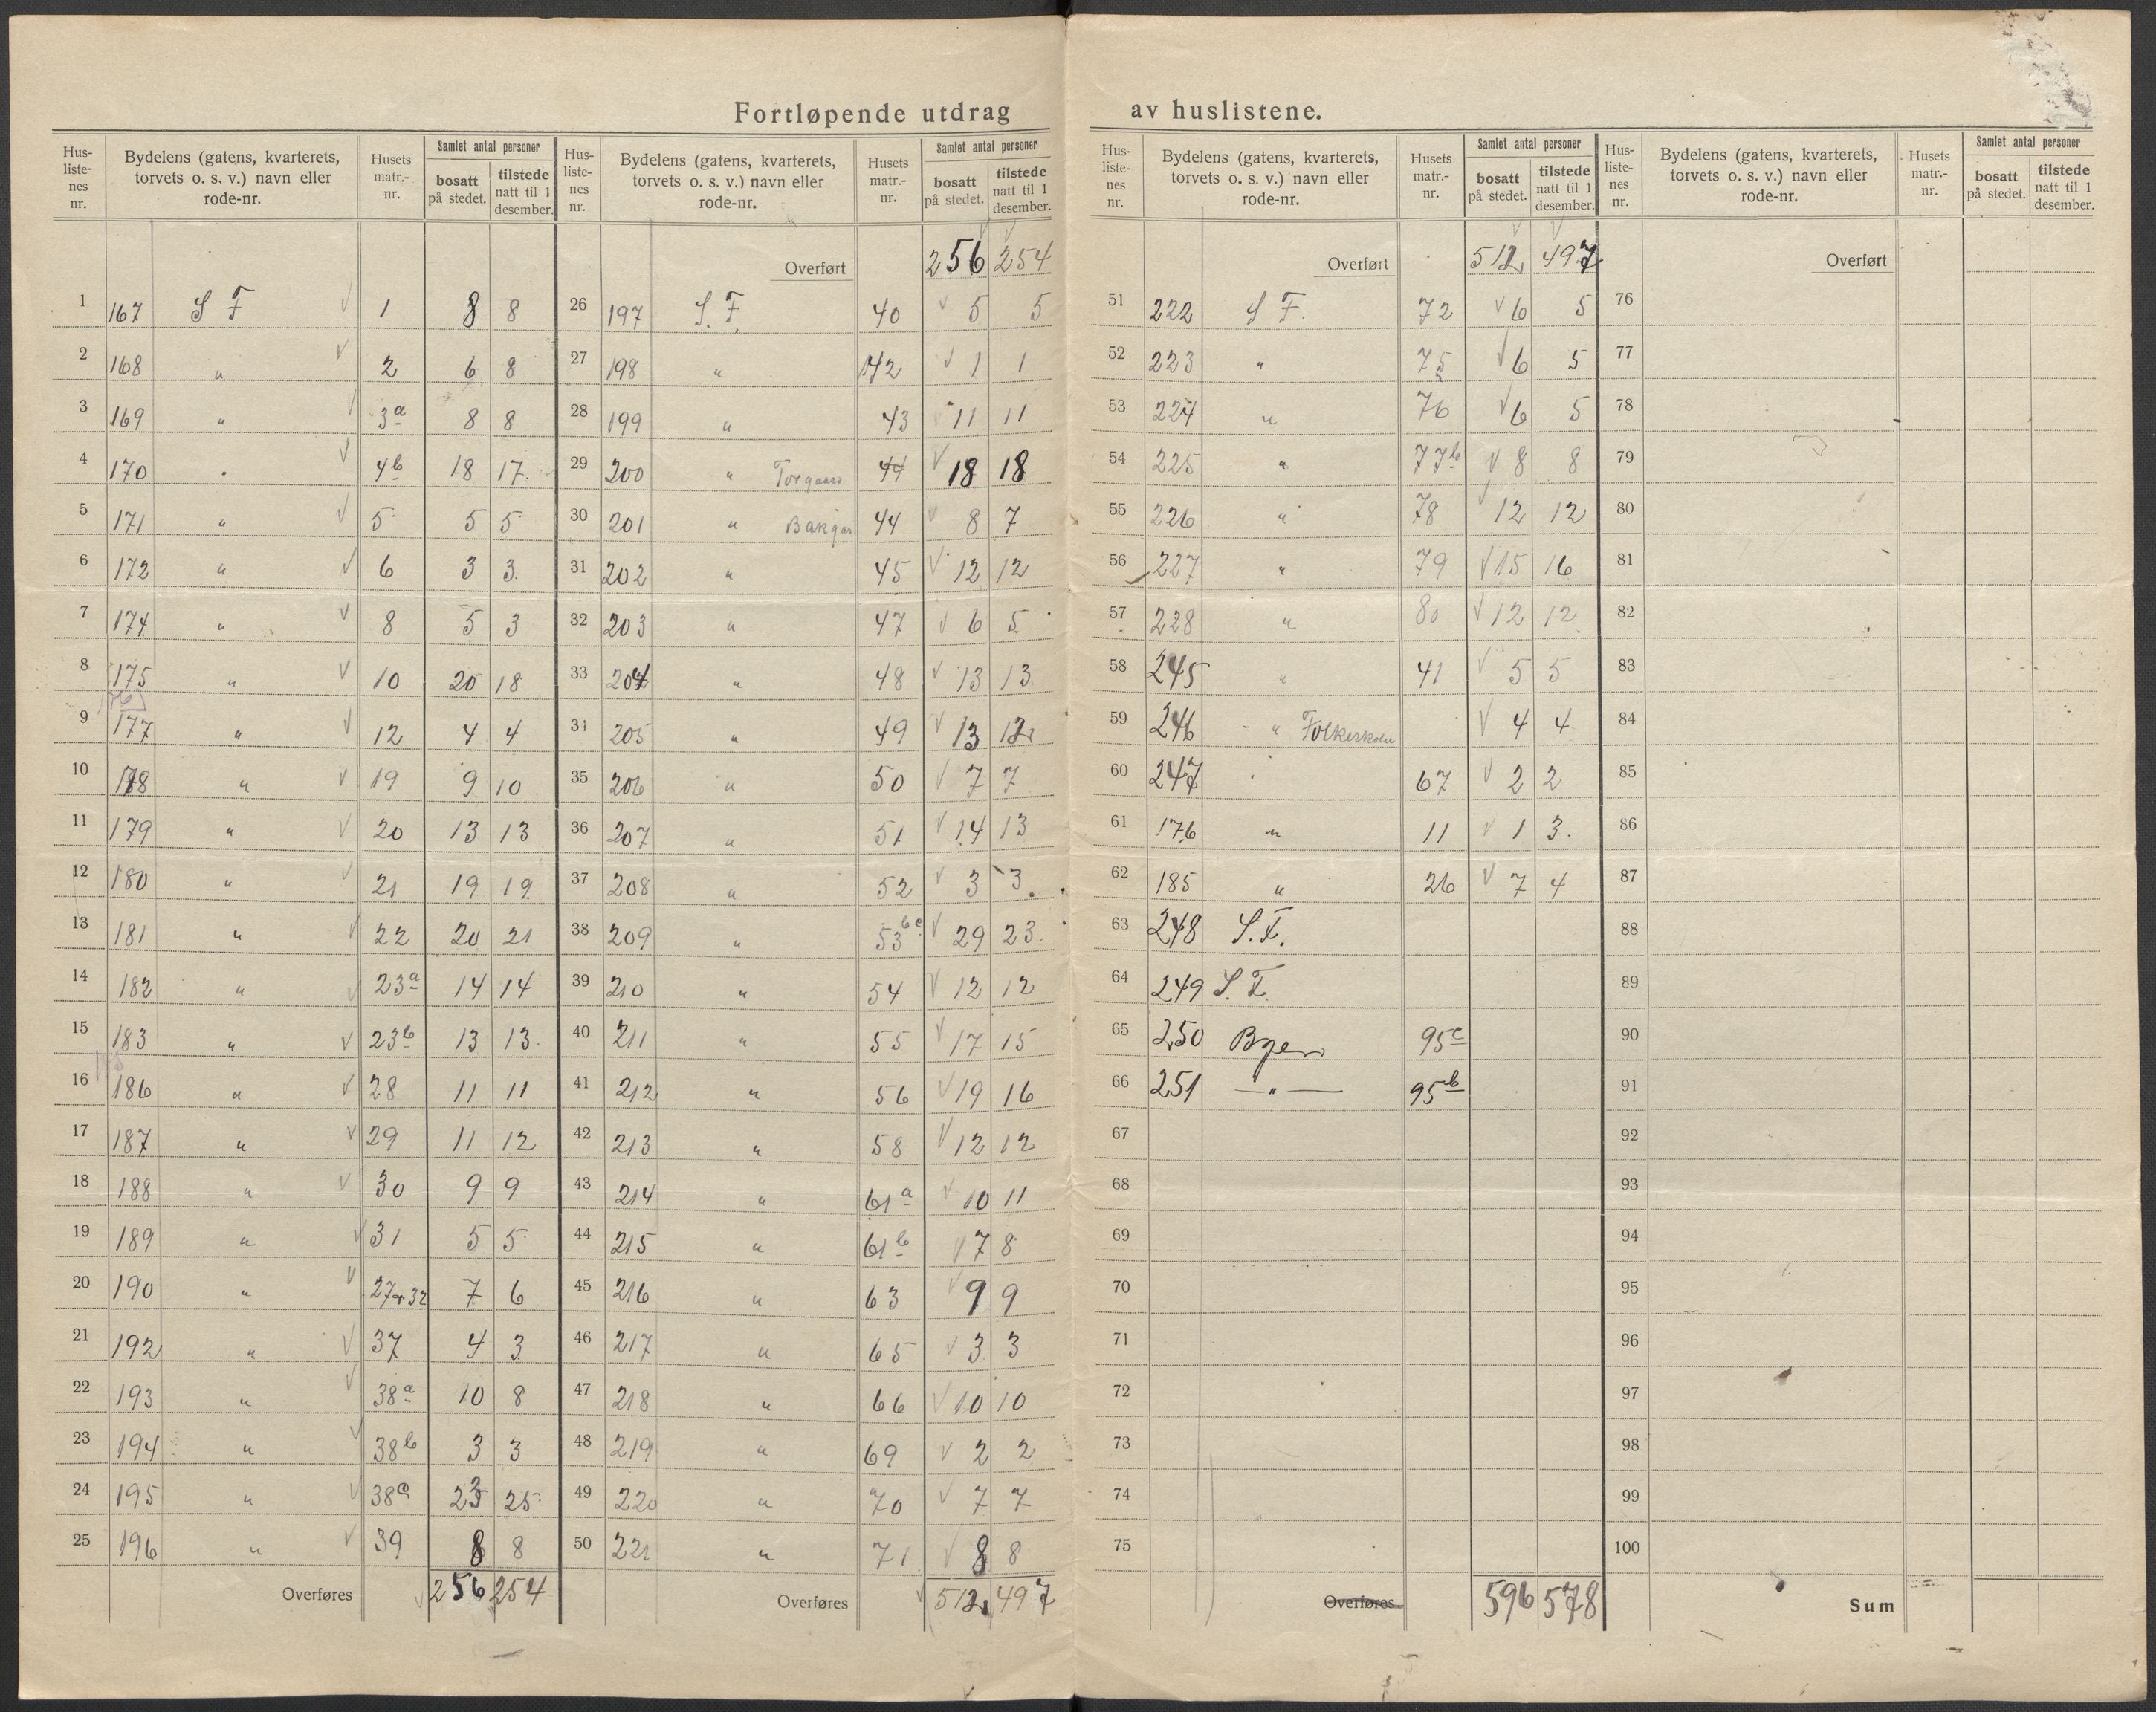 Fortløpende utdrag av huslistene.
Hus-listenes nr. Bydelens (gatens, kvarterets, torvets o. s. v.) navn eller rode-nr. Husets matr.-nr. Samlet antal personer bosatt på stedet. tilstede natt til 1 desember.
1 167 S F √ 1 8 8
2 168 " √ 2 6 8
3 169 " √ 3a 8 8
4 170 " √ 4b 18 17
5 171 " √ 5 5 5
6 172 " √ 6 3 3
7 174 " √ 8 5 3
8 175 " √ 10 20 18
9 177 " √ 12 4 4
10 178 " √ 19 9 10
11 179 " √ 20 13 13
12 180 " √ 21 19 19
13 181 " √ 22 20 21
14 182 " √ 23a 14 14
15 183 " √ 23b 13 13
16 186 " √ 28 11 11
17 187 " √ 29 11 12
18 188 " √ 30 9 9
19 189 " √ 31 5 5
20 190 " √ 27+32 7 6
21 192 " √ 37 4 3
22 193 " √ 38a 10 8
23 194 " √ 38b 3 3
24 195 " √ 38c 23 25
25 196 " √ 39 8 8
Overføres √ 256 254
Hus-listenes nr. Bydelens (gatens, kvarterets, torvets o. s. v.) navn eller rode-nr. Husets matr.-nr. Samlet antal personer bosatt på stedet. tilstede natt til 1 desember.
Overført 256 254
26 197 S. F. 40 √ 5 5
27 198 " 42 √ 1 1
28 199 " 43 √ 11 11
29 200 " Torgaard 44 √ 18 18
30 201 " Bakgar 44 √ 8 7
31 202 " 45 √ 12 12
32 203 " 47 √ 6 5
33 204 " 48 √ 13 13
34 205 " 49 √ 13 12
35 206 " 50 √ 7 7
36 207 " 51 √ 14 13
37 208 " 52 √ 3 3
38 209 " 53bc √ 29 23
39 210 " 54 √ 12 12
40 211 " 55 √ 17 15
41 212 " 56 √ 19 16
42 213 " 58 √ 12 12
43 214 " 61a √ 10 11
44 215 " 61b √ 7 8
45 216 " 63 √ 9 9
46 217 " 65 √ 3 3
47 218 " 66 √ 10 10
48 219 " 69 √ 2 2
49 220 " 70 √ 7 7
50 221 " 71 √ 8 8
Overføres √ 512 497
Hus-listenes nr. Bydelens (gatens, kvarterets, torvets o. s. v.) navn eller rode-nr. Husets matr.-nr. Samlet antal personer bosatt på stedet. tilstede natt til 1 desember.
Overført 512 497
51 222 S F. 72 √ 6 5
52 223 " 75 √ 6 5
53 224 " 76 √ 6 5
54 225 " 77b √ 8 8
55 226 " 78 √ 12 12
56 227 " 79 √ 15 16
57 228 " 80 √ 12 12
58 245 " 41 √ 5 5
59 246 " Folkeskolen √ 4 4
60 247 " 67 √ 2 2
61 176 " 11 √ 1 3
62 185 " 26 √ 7 4
63 248 S. F.
64 249 S. F.
65 250 Byen 95c
66 251 — " — 95b
67
68
69
70
71
72
73
74
75
Overføres 596 578
Hus-listenes nr. Bydelens (gatens, kvarterets, torvets o. s. v.) navn eller rode-nr. Husets matr.-nr. Samlet antal personer bosatt på stedet. tilstede natt til 1 desember.
Overført
76
77
78
79
80
81
82
83
84
85
86
87
88
89
90
91
92
93
94
95
96
97
98
99
100
Sum